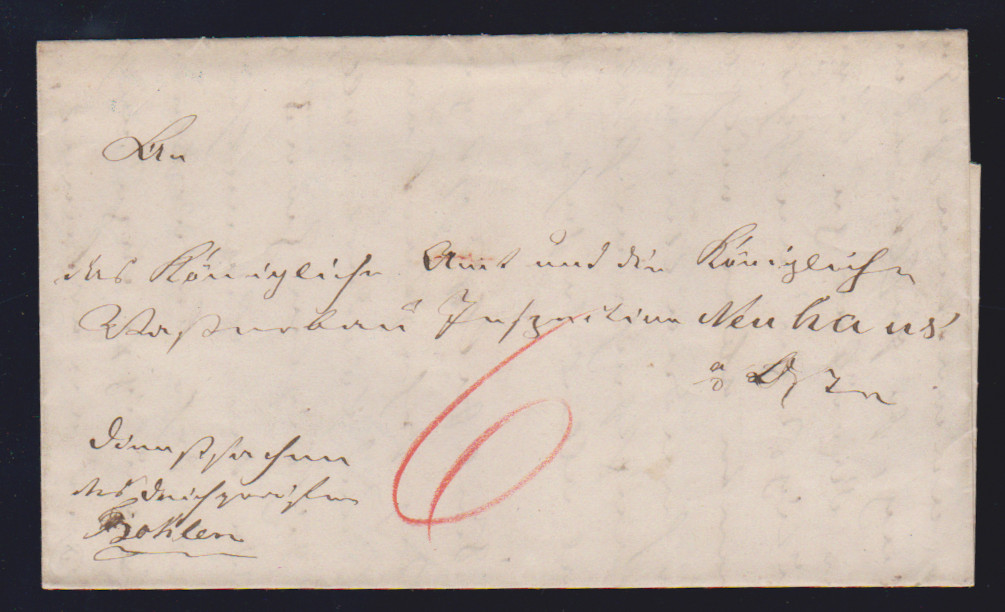 An
das Königliche Amt und die Königliche
Wasserbau Inspection Neuhaus
a/d Oste
Dienstsachen
des Deichgräfen
Bohlen
6